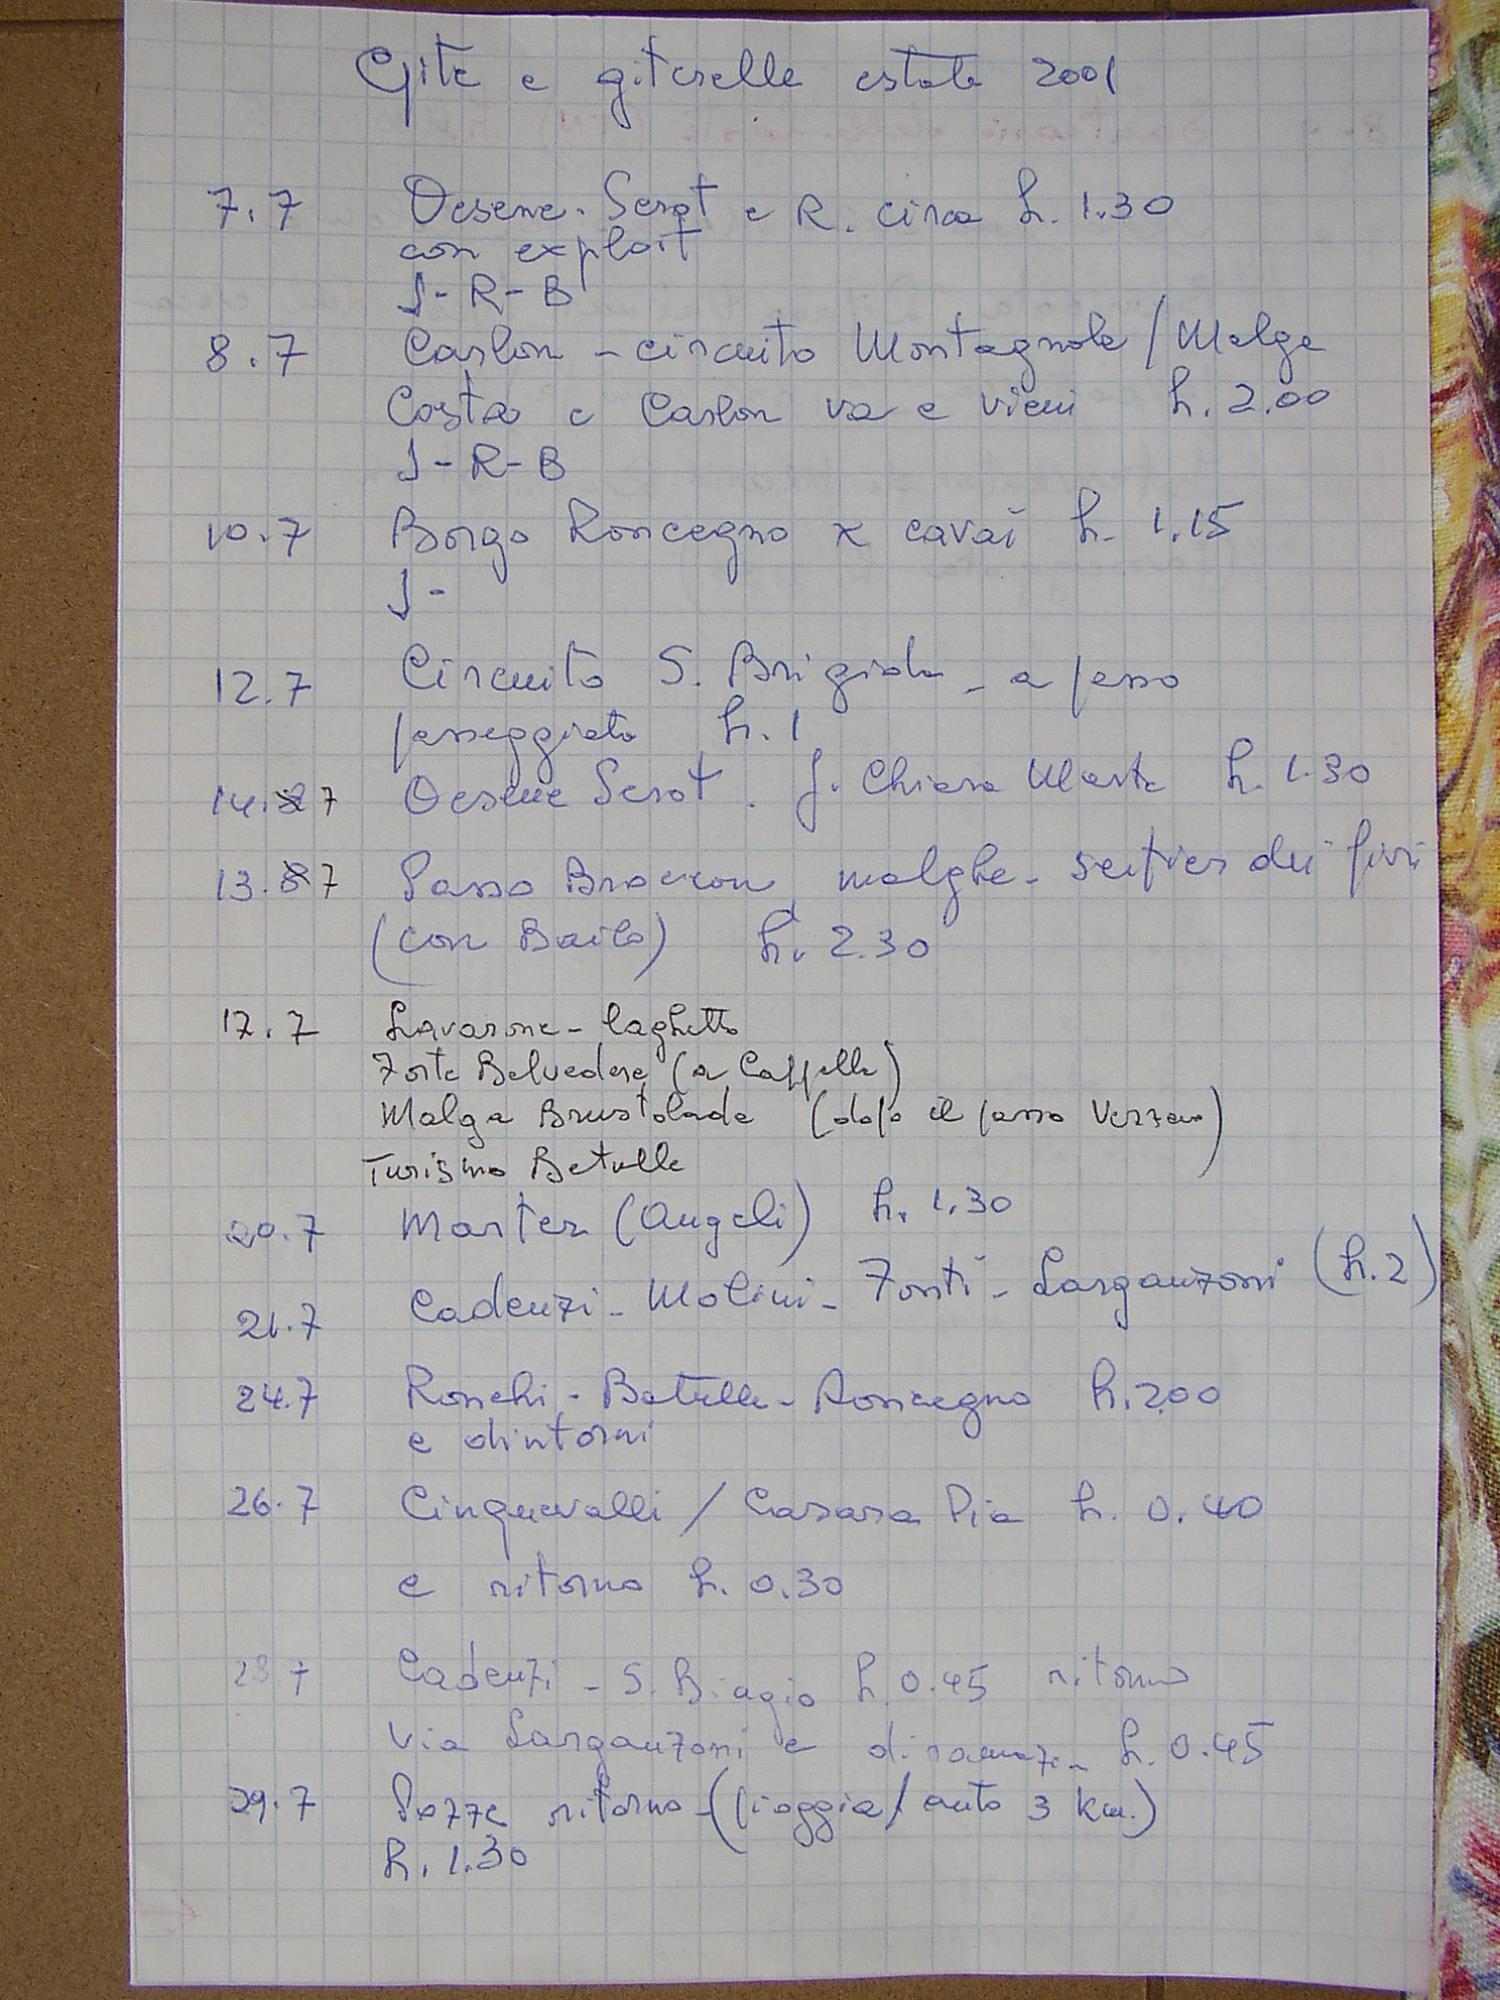 Gite e giterelle estate 2001
7.7 Desene - Serot e R. circa h. 1.30
con exploit
J - R - B
8.7 Carlon - circuito Montagnola / Malga
Costa e Carlon va e vieni h. 2.00
J - R - B
10.7 Borgo Roncegno x cavai h. 1.15
J -
12.7 Circuito S. Brigida - a passo
passeggiata h. 1
14.7 Desene Serot. J. Chiara Marta h. 1.30
13.7 Passo Broccon malghe - sentier dei fiori
(con Baila) h. 2.30
17.7 Lavarone - laghetto
Forte Belvedere (a Cappella)
Malga Brustolade (dopo il passo Vezzena)
Turismo Betulle
20.7 Marter (Angeli) h. 1.30
21.7 Cadenzi - Molini - Fonti - Larganzoni (h. 2)
24.7 Ronchi - Betulle - Roncegno h. 2.00
e dintorni
26.7 Cinquevalli / Casara Pia h. 0.40
e ritorno h. 0.30
28.7 Cadenzi - S. Biagio h. 0.45 ritorno
via Larganzoni e h. 0.45
29.7 Pozze ritorno - (pioggia / auto 3 km.)
h. 1.30